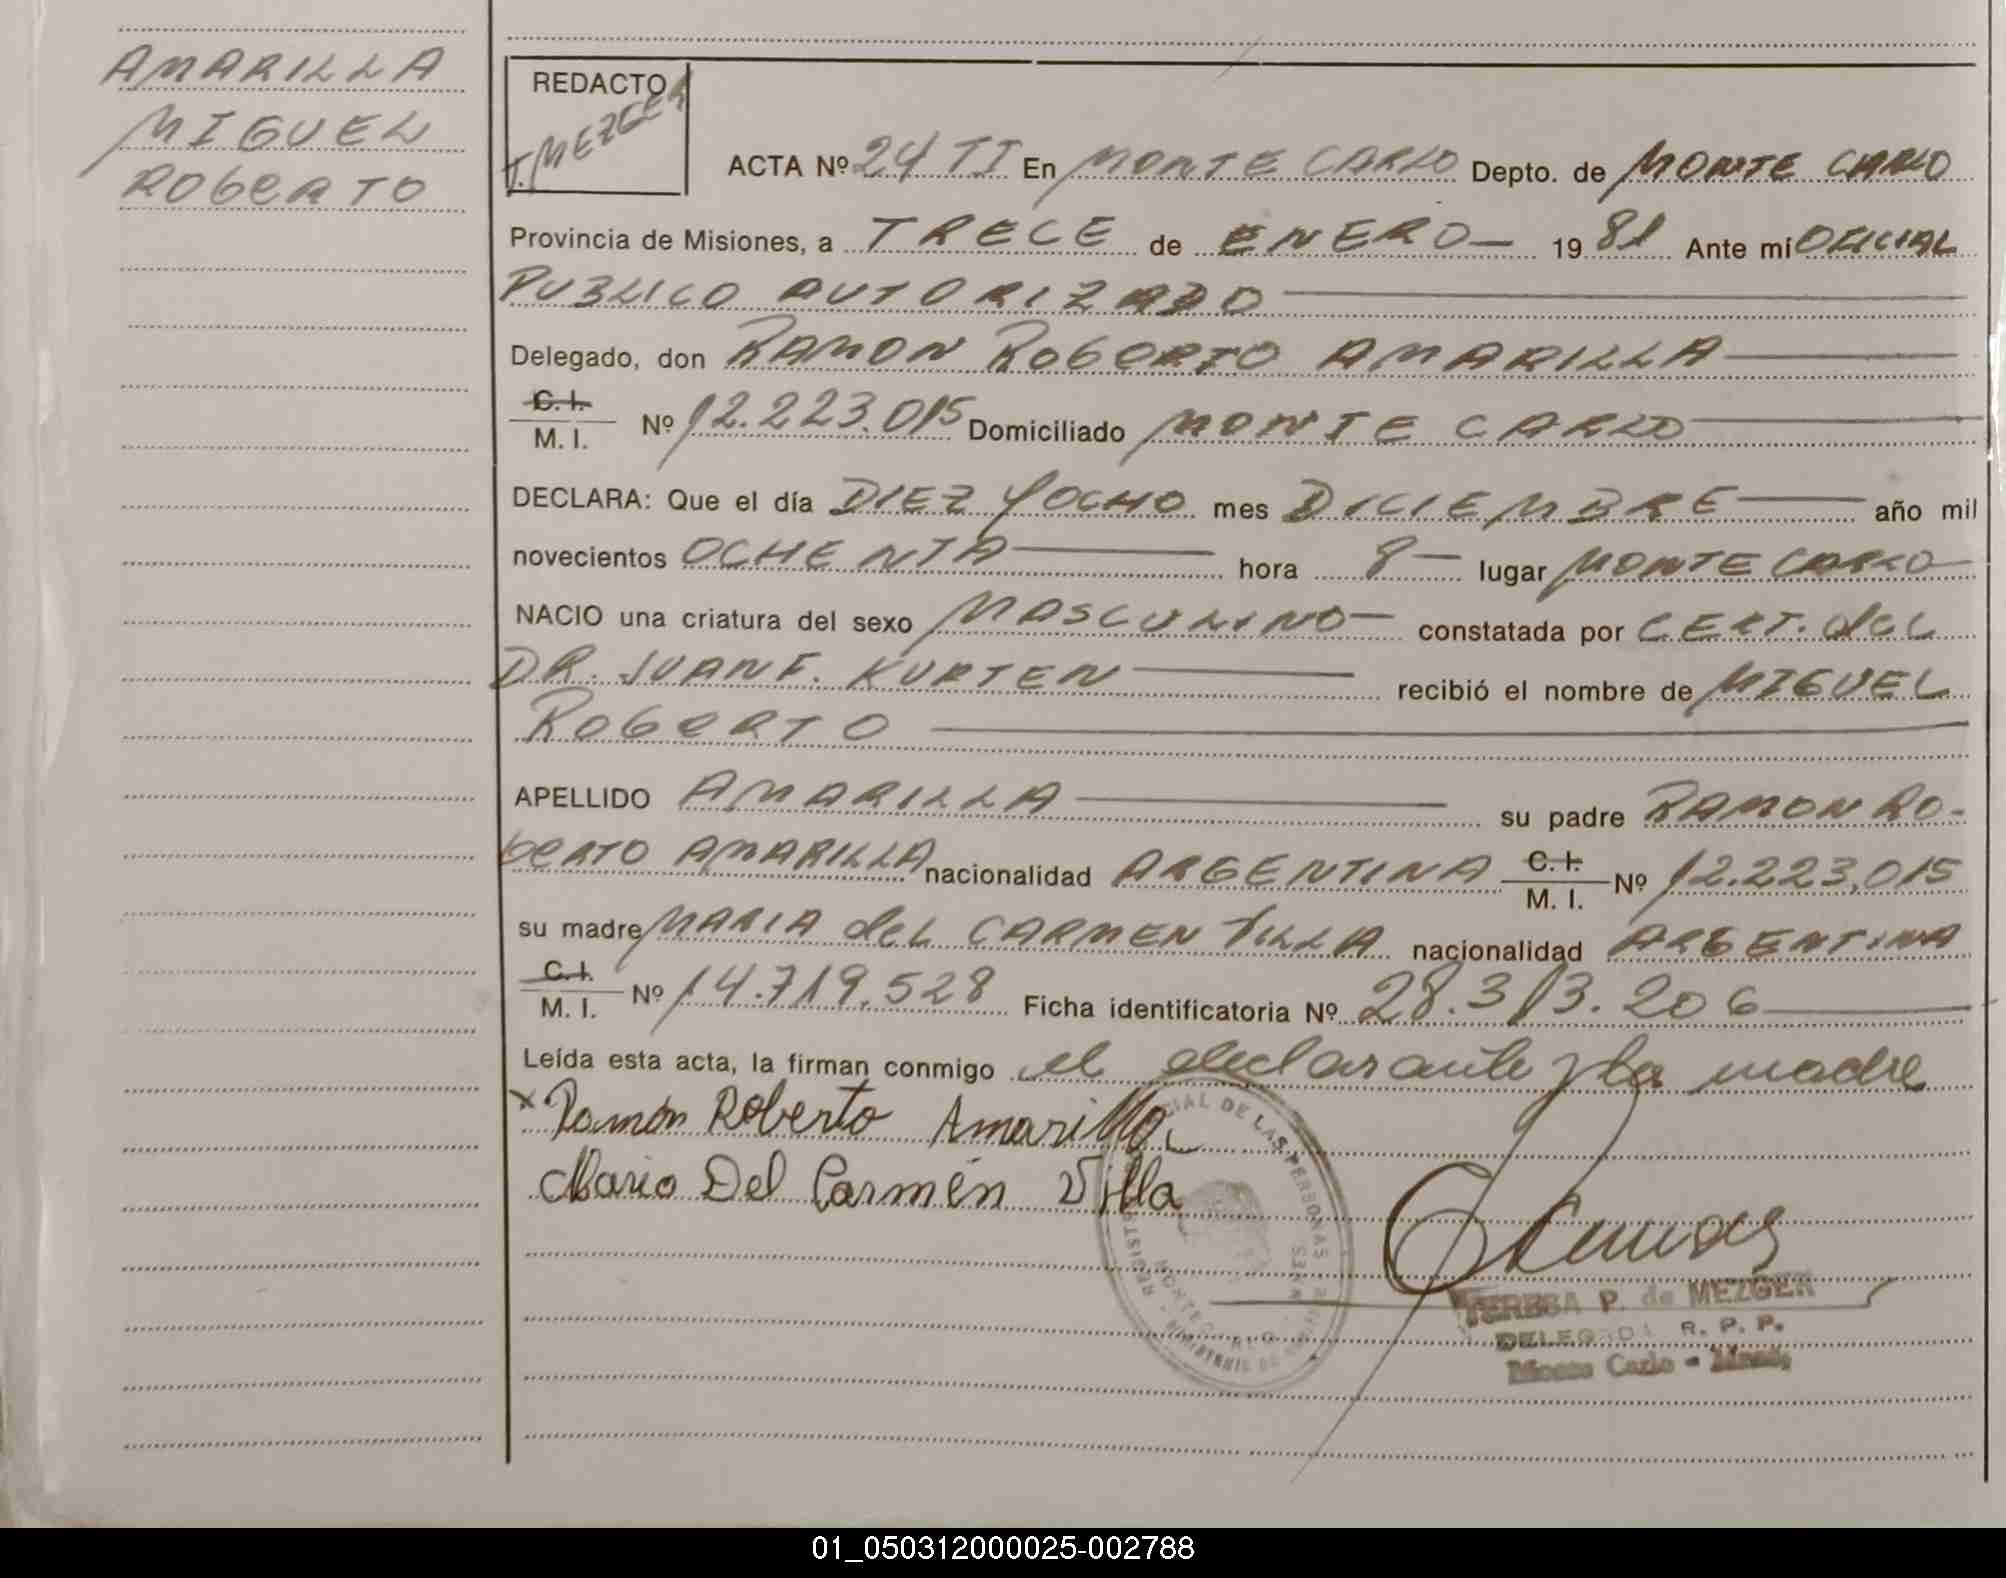 AMARILLA
MIGUEL
ROBERTO
REDACTO
T. MEZGER
ACTA Nº 24 TI En MONTE CARLO Depto. de MONTE CARLO
Provincia de Misiones, a TRECE de ENERO 19 81 Ante mí OFICIAL
PUBLICO AUTORIZADO
Delegado, don RAMON ROBERTO AMARILLA
C. I.
M. I. Nº 12.223.015 Domiciliado MONTE CARLO
DECLARA: Que el día DIEZ YOCHO mes DICIEMBRE año mil
novecientos OCHENTA hora 8 lugar MONTE CARLO
NACIO una criatura del sexo MASCULINO constatada por CERT. del
DR. JUAN F. KURTEN recibió el nombre de MIGUEL
ROBERTO
APELLIDO AMARILLA su padre RAMON RO-
BERTO AMARILLA nacionalidad ARGENTINA C. I. M. I. Nº 12.223.015
su madre MARIA del CARMEN VILLA nacionalidad ARGENTINA
C. I.
M. I. Nº 14.719.528 Ficha identificatoria Nº 28.313.206
Leída esta acta, la firman conmigo el declarante y la madre
x Ramón Roberto Amarilla
Maria Del Carmén Villa
TERESA P. de MEZGER
DELEGADA R. P. P.
Monte Carlo - Mnes.
01_050312000025-002788